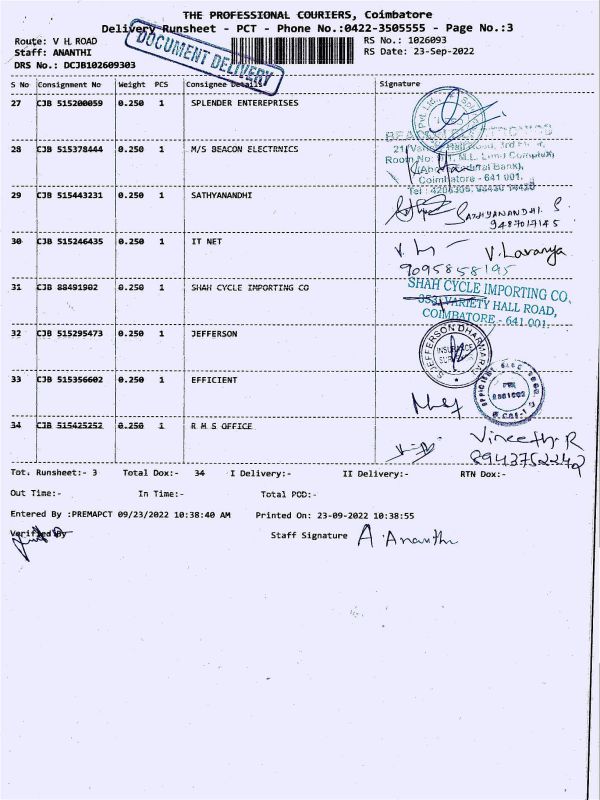 THE PROFESSIONAL COURIERS, Coimbatore
Delivery Runsheet - PCT - Phone No.:0422-3505555 - Page No.:3
Route: V H. ROAD
RS No.: 1026093
Staff: ANANTHI
RS Date: 23-Sep-2022
DRS No.: DCJB102609303
DOCUMENT DELIVERY
S No Consignment No Weight PCS Consignee Details Signature
27 CJB 515200059 0.250 1 SPLENDER ENTEREPRISES
Pvt. Ltd.,
28 CJB 515378444 0.250 1 M/S BEACON ELECTRNICS
BEACON
Hall Road, 3rd
Room No:
Coimbatore - 641 001.
29 CJB 515443231 0.250 1 SATHYANANDHI
SATHYANANDHI. S
9487017145
30 CJB 515246435 0.250 1 IT NET
V. Lavanya
9095858195
31 CJB 88491902 0.250 1 SHAH CYCLE IMPORTING CO
SHAH CYCLE IMPORTING CO,
353, VARIETY HALL ROAD,
COIMBATORE - 641 001.
32 CJB 515295473 0.250 1 JEFFERSON
S.JEFFERSON DHARMARAJ
INSURANCE
33 CJB 515356602 0.250 1 EFFICIENT
34 CJB 515425252 0.250 1 R M S OFFICE
Vineeth.R
8943752242
Tot. Runsheet:- 3 Total Dox:- 34 I Delivery:- II Delivery:- RTN Dox:-
Out Time:- In Time:- Total POD:-
Entered By :PREMAPCT 09/23/2022 10:38:40 AM Printed On: 23-09-2022 10:38:55
Verified By
Staff Signature A. Ananthi